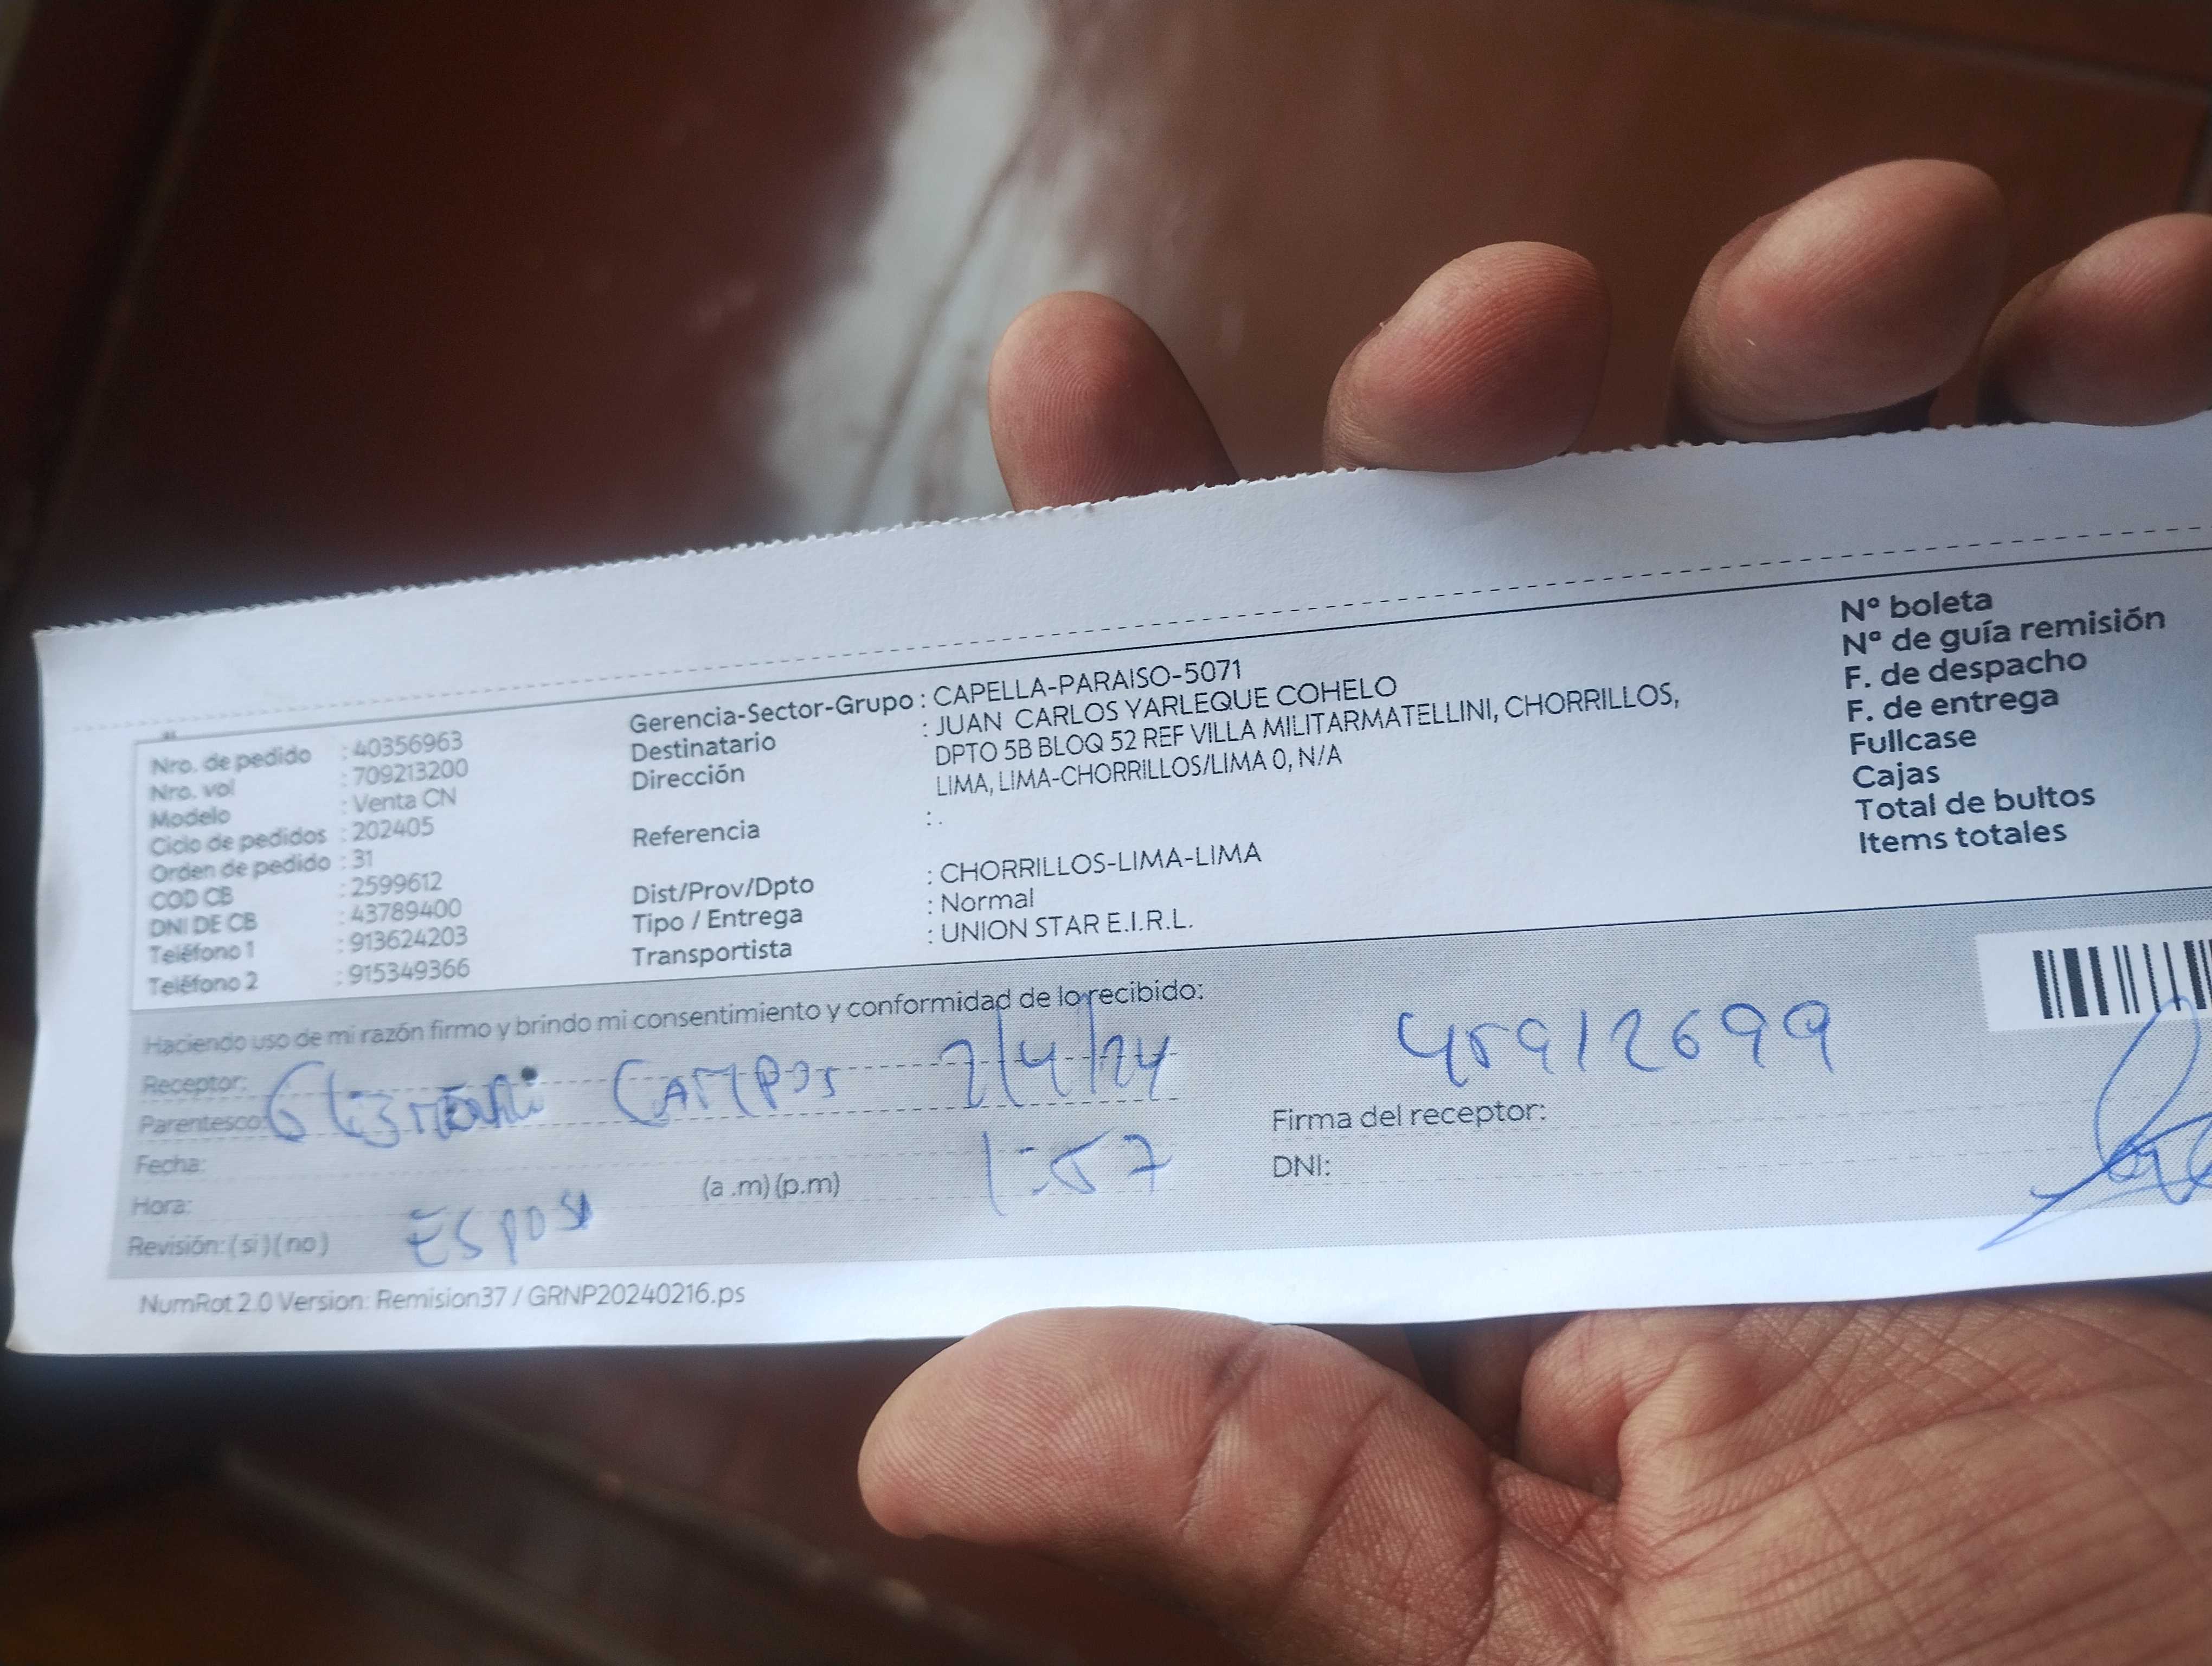 Nro. de pedido : 40356963
Nro. vol : 709213200
Modelo : Venta CN
Ciclo de pedidos : 202405
Orden de pedido : 31
COD CB : 2599612
DNI DE CB : 43789400
Teléfono 1 : 913624203
Teléfono 2 : 915349366
Gerencia-Sector-Grupo : CAPELLA-PARAISO-5071
Destinatario : JUAN CARLOS YARLEQUE COHELO
Dirección DPTO 5B BLOQ 52 REF VILLA MILITARMATELLINI, CHORRILLOS,
LIMA, LIMA-CHORRILLOS/LIMA 0, N/A
Referencia : .
Dist/Prov/Dpto : CHORRILLOS-LIMA-LIMA
Tipo / Entrega : Normal
Transportista : UNION STAR E.I.R.L.
Nº boleta
Nº de guía remisión
F. de despacho
F. de entrega
Fullcase
Cajas
Total de bultos
Items totales
Haciendo uso de mi razón firmo y brindo mi consentimiento y conformidad de lo recibido:
Receptor:
Parentesco: CAMPOS 2/4/24
Fecha:
Hora: (a .m) (p.m) 1:57
Revisión: ( si ) ( no ) ESPOSA
45912699
Firma del receptor:
DNI:
NumRot 2.0 Version: Remision37 / GRNP20240216.ps